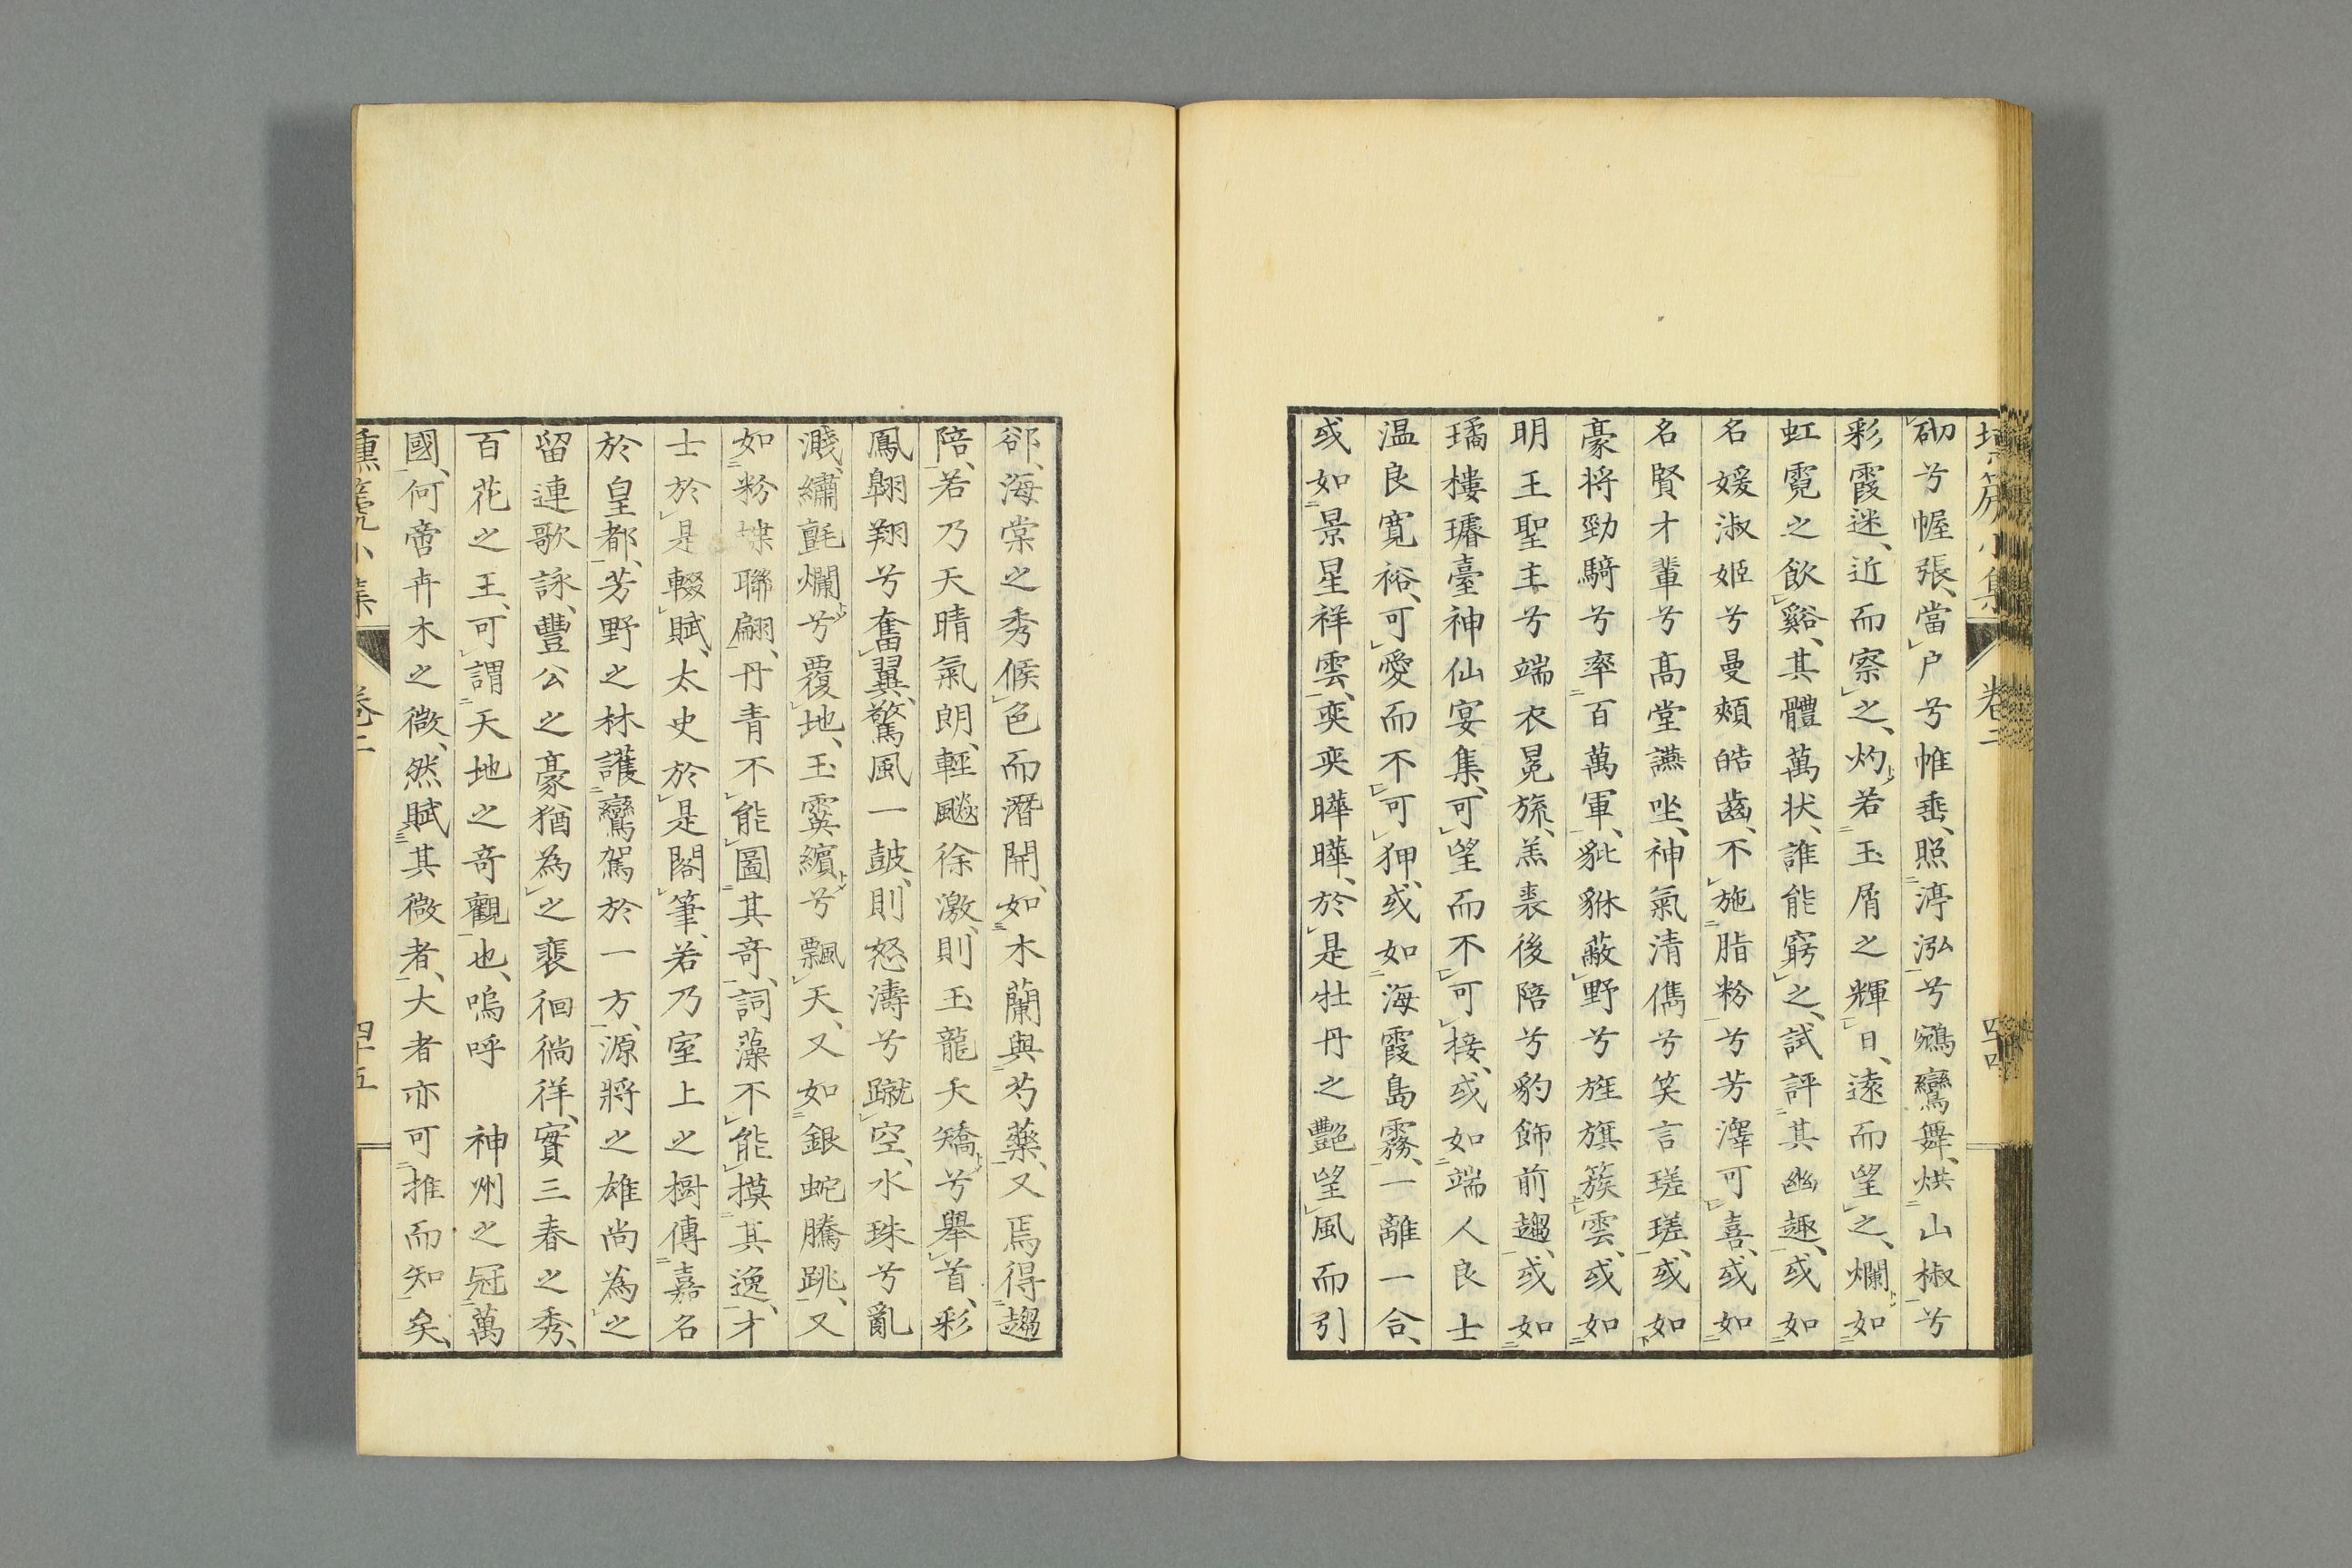 砌兮幄張、當户兮帷垂、照渟泓兮鵷鸞舞、烘山椒兮
彩霞迷、近而察之、灼若玉屑之輝日、遠而望之、爛如
虹霓之飲谿、其體萬状、誰能窮之、試評其幽趣、或如
名媛淑姬兮曼頰皓齒、不施脂粉兮芳澤可喜、或如
名賢才輩兮髙堂讌坐、神氣清儁兮笑言瑳瑳、或如
豪将勁騎兮率百萬軍、豼貅蔽野兮旌旗簇雲、或如
明王聖主兮端衣冕旒、羔裘後陪兮豹飾前趨、或如
璚樓璿臺神仙宴集、可望而不可接、或如端人良士
温良寛裕、可愛而不可狎、或如海霞島霧、一離一合、
或如景星祥雲、奕奕曄曄、於是牡丹之艷望風而引
郤、海棠之秀候色而潛開、如木蘭與芍藥、又焉得趨
陪、若乃天晴氣朗、輕颷徐激、則玉龍夭矯兮舉首、彩
鳳翺翔兮奮翼、驚風一鼓、則怒濤兮蹴空、水珠兮亂
濺、繡氈爛兮覆地、玉霙繽兮飄天、又如銀蛇騰跳、又
如粉蝶聯翩、丹青不能圖其竒、詞藻不能摸其逸、才
士於是輟賦、太史於是閣筆、若乃室上之樹傳嘉名
於皇都、芳野之林護鸞駕於一方、源將之雄尚為之
留連歌詠、豐公之豪猶為之裴徊徜徉、實三春之秀、
百花之王、可謂天地之竒觀也、嗚呼 神州之冠萬
國、何啻卉木之微、然賦其微者、大者亦可推而知矣、
壎箎小集 卷二 四十五